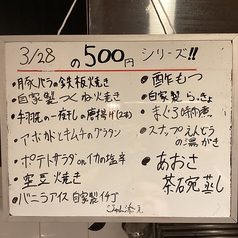 3/28 の500円シリーズ!!
・豚バラの鉄板焼き
・自家製つくね焼き
・手羽先の一夜干しの唐揚げ(2本)
・アボカドとキムチのグラタン
・ポテトサラダ onイカの塩辛
・空豆焼き
・バニラアイス 自家製イチゴ
・酢もつ
・自家製らっきょ
・まぐろ時雨煮
・スナップえんどうの湯がき
・あおさ
茶碗蒸し